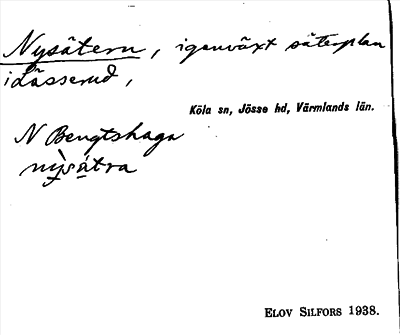 Nysätern, igenväxt säterplan
i Lässerud,
Köla sn, Jösse hd, Värmlands län.
N Bengtshaga
nỳsátra
ELOV SILFORS 1938.